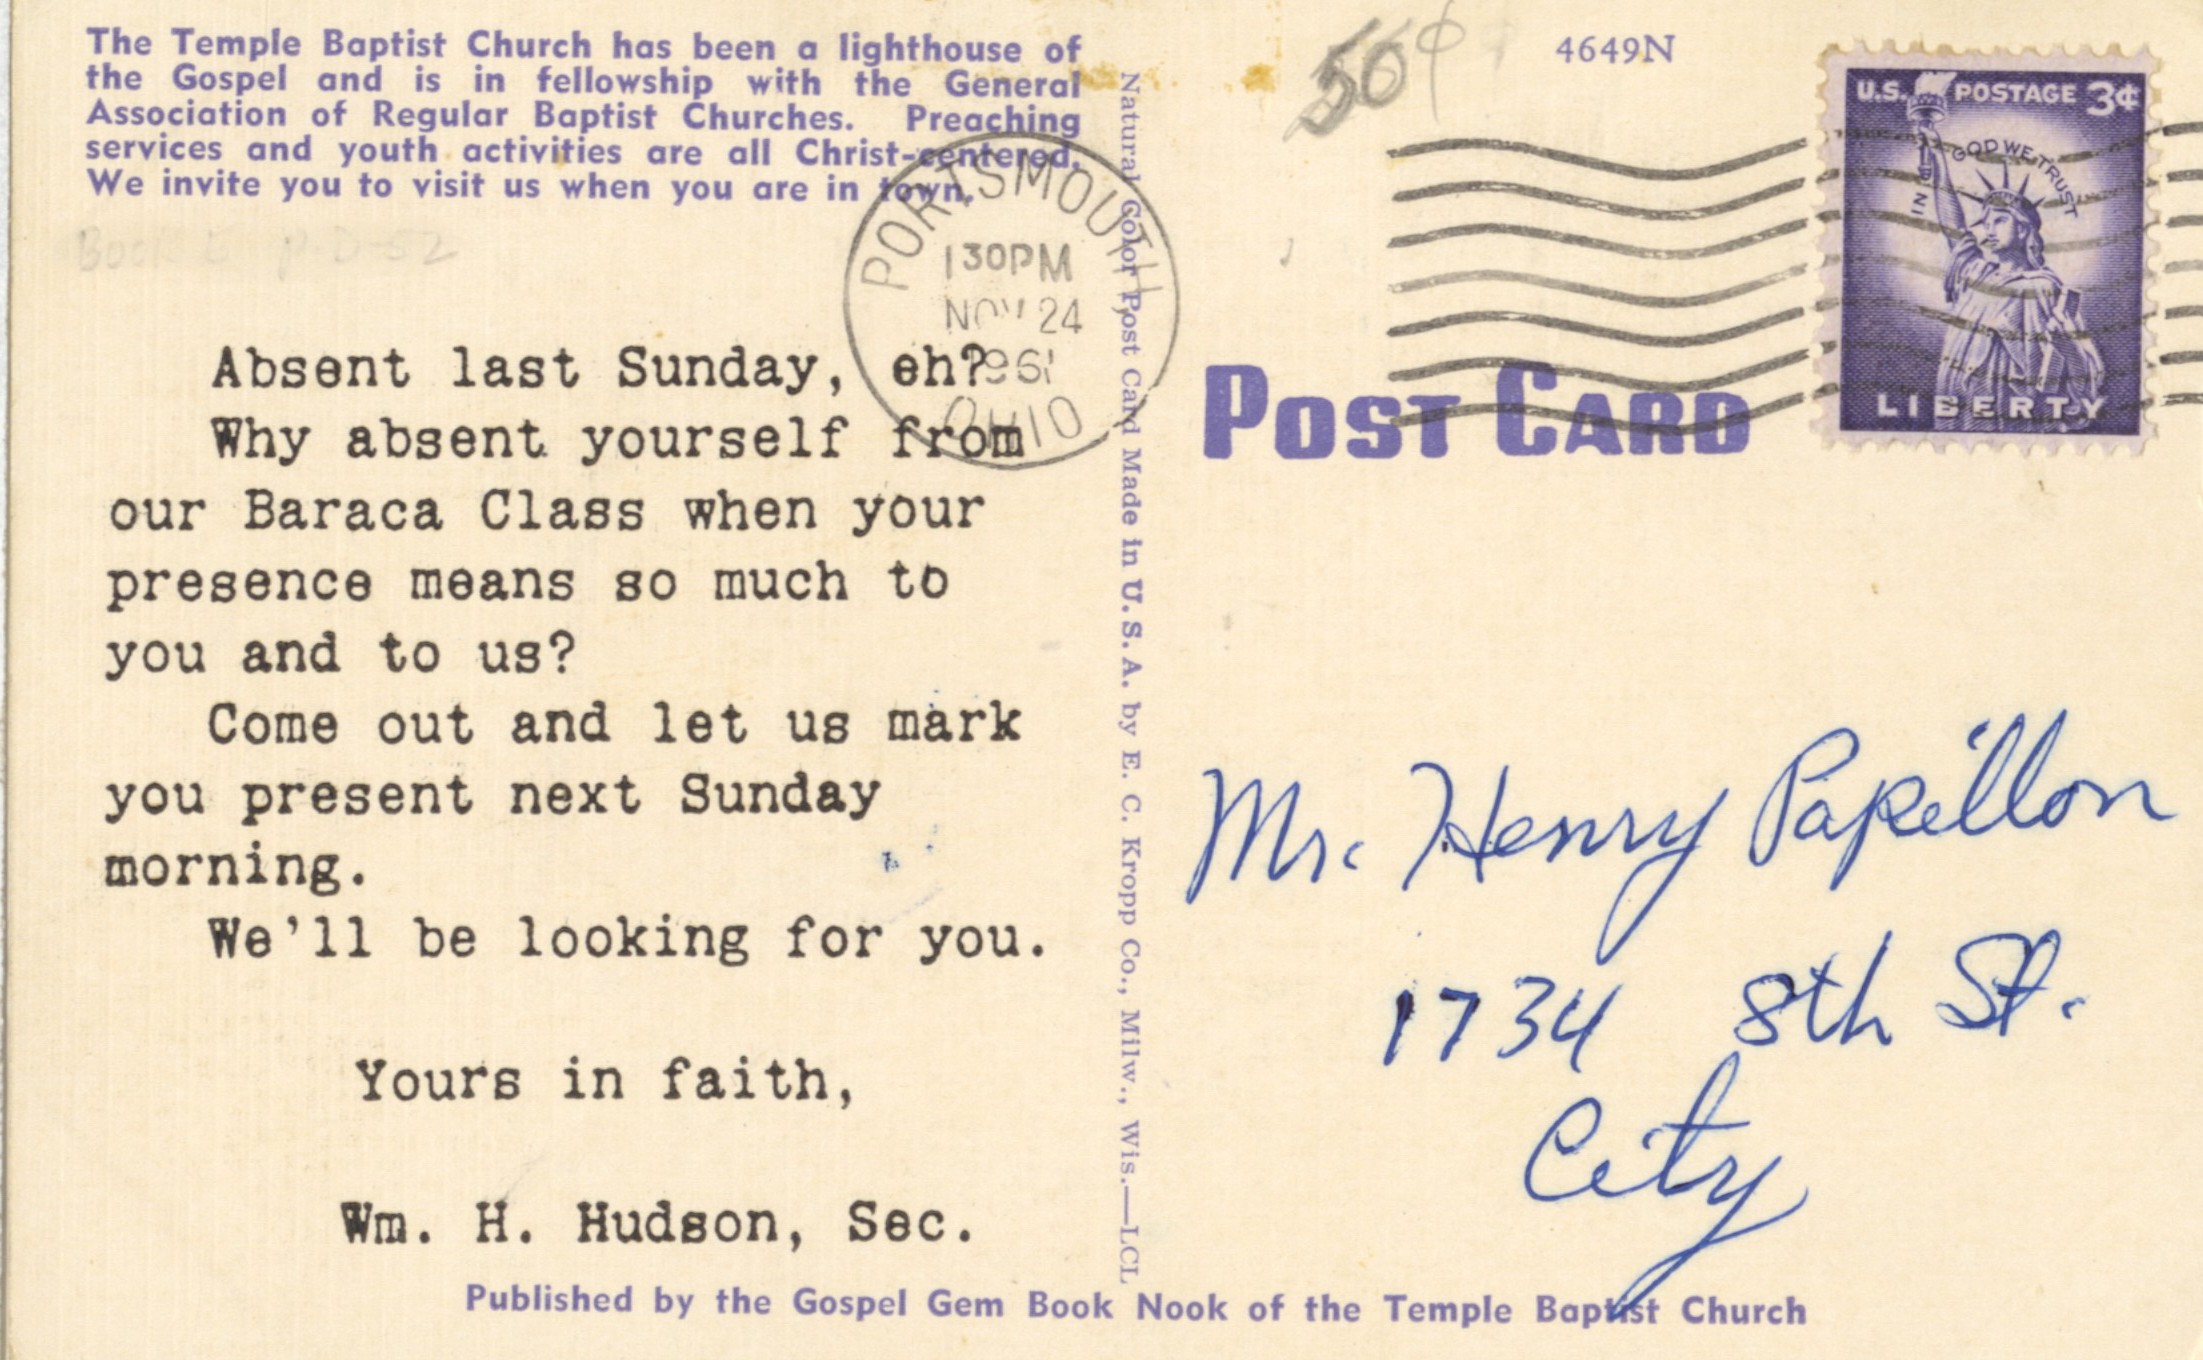 The Temple Baptist Church has been a lighthouse of
the Gospel and is in fellowship with the General
Association of Regular Baptist Churches. Preaching
services and youth activities are all Christ-centered.
We invite you to visit us when you are in town.
Book p. D-52
Absent last Sunday, eh?
Why absent yourself from
our Baraca Class when your
presence means so much to
you and to us?
Come out and let us mark
you present next Sunday
morning.
We'll be looking for you.
Yours in faith,
Wm. H. Hudson, Sec.
PORTSMOUTH
1 30PM
NOV 24
1961
OHIO
Natural Color Post Card Made in U.S.A. by E. C. Kropp Co., Milw., Wis.—LCL
50¢
4649N
U.S. POSTAGE 3¢
IN GOD WE TRUST
LIBERTY
POST CARD
Mr. Henry Papillon
1734 8th St.
City
Published by the Gospel Gem Book Nook of the Temple Baptist Church